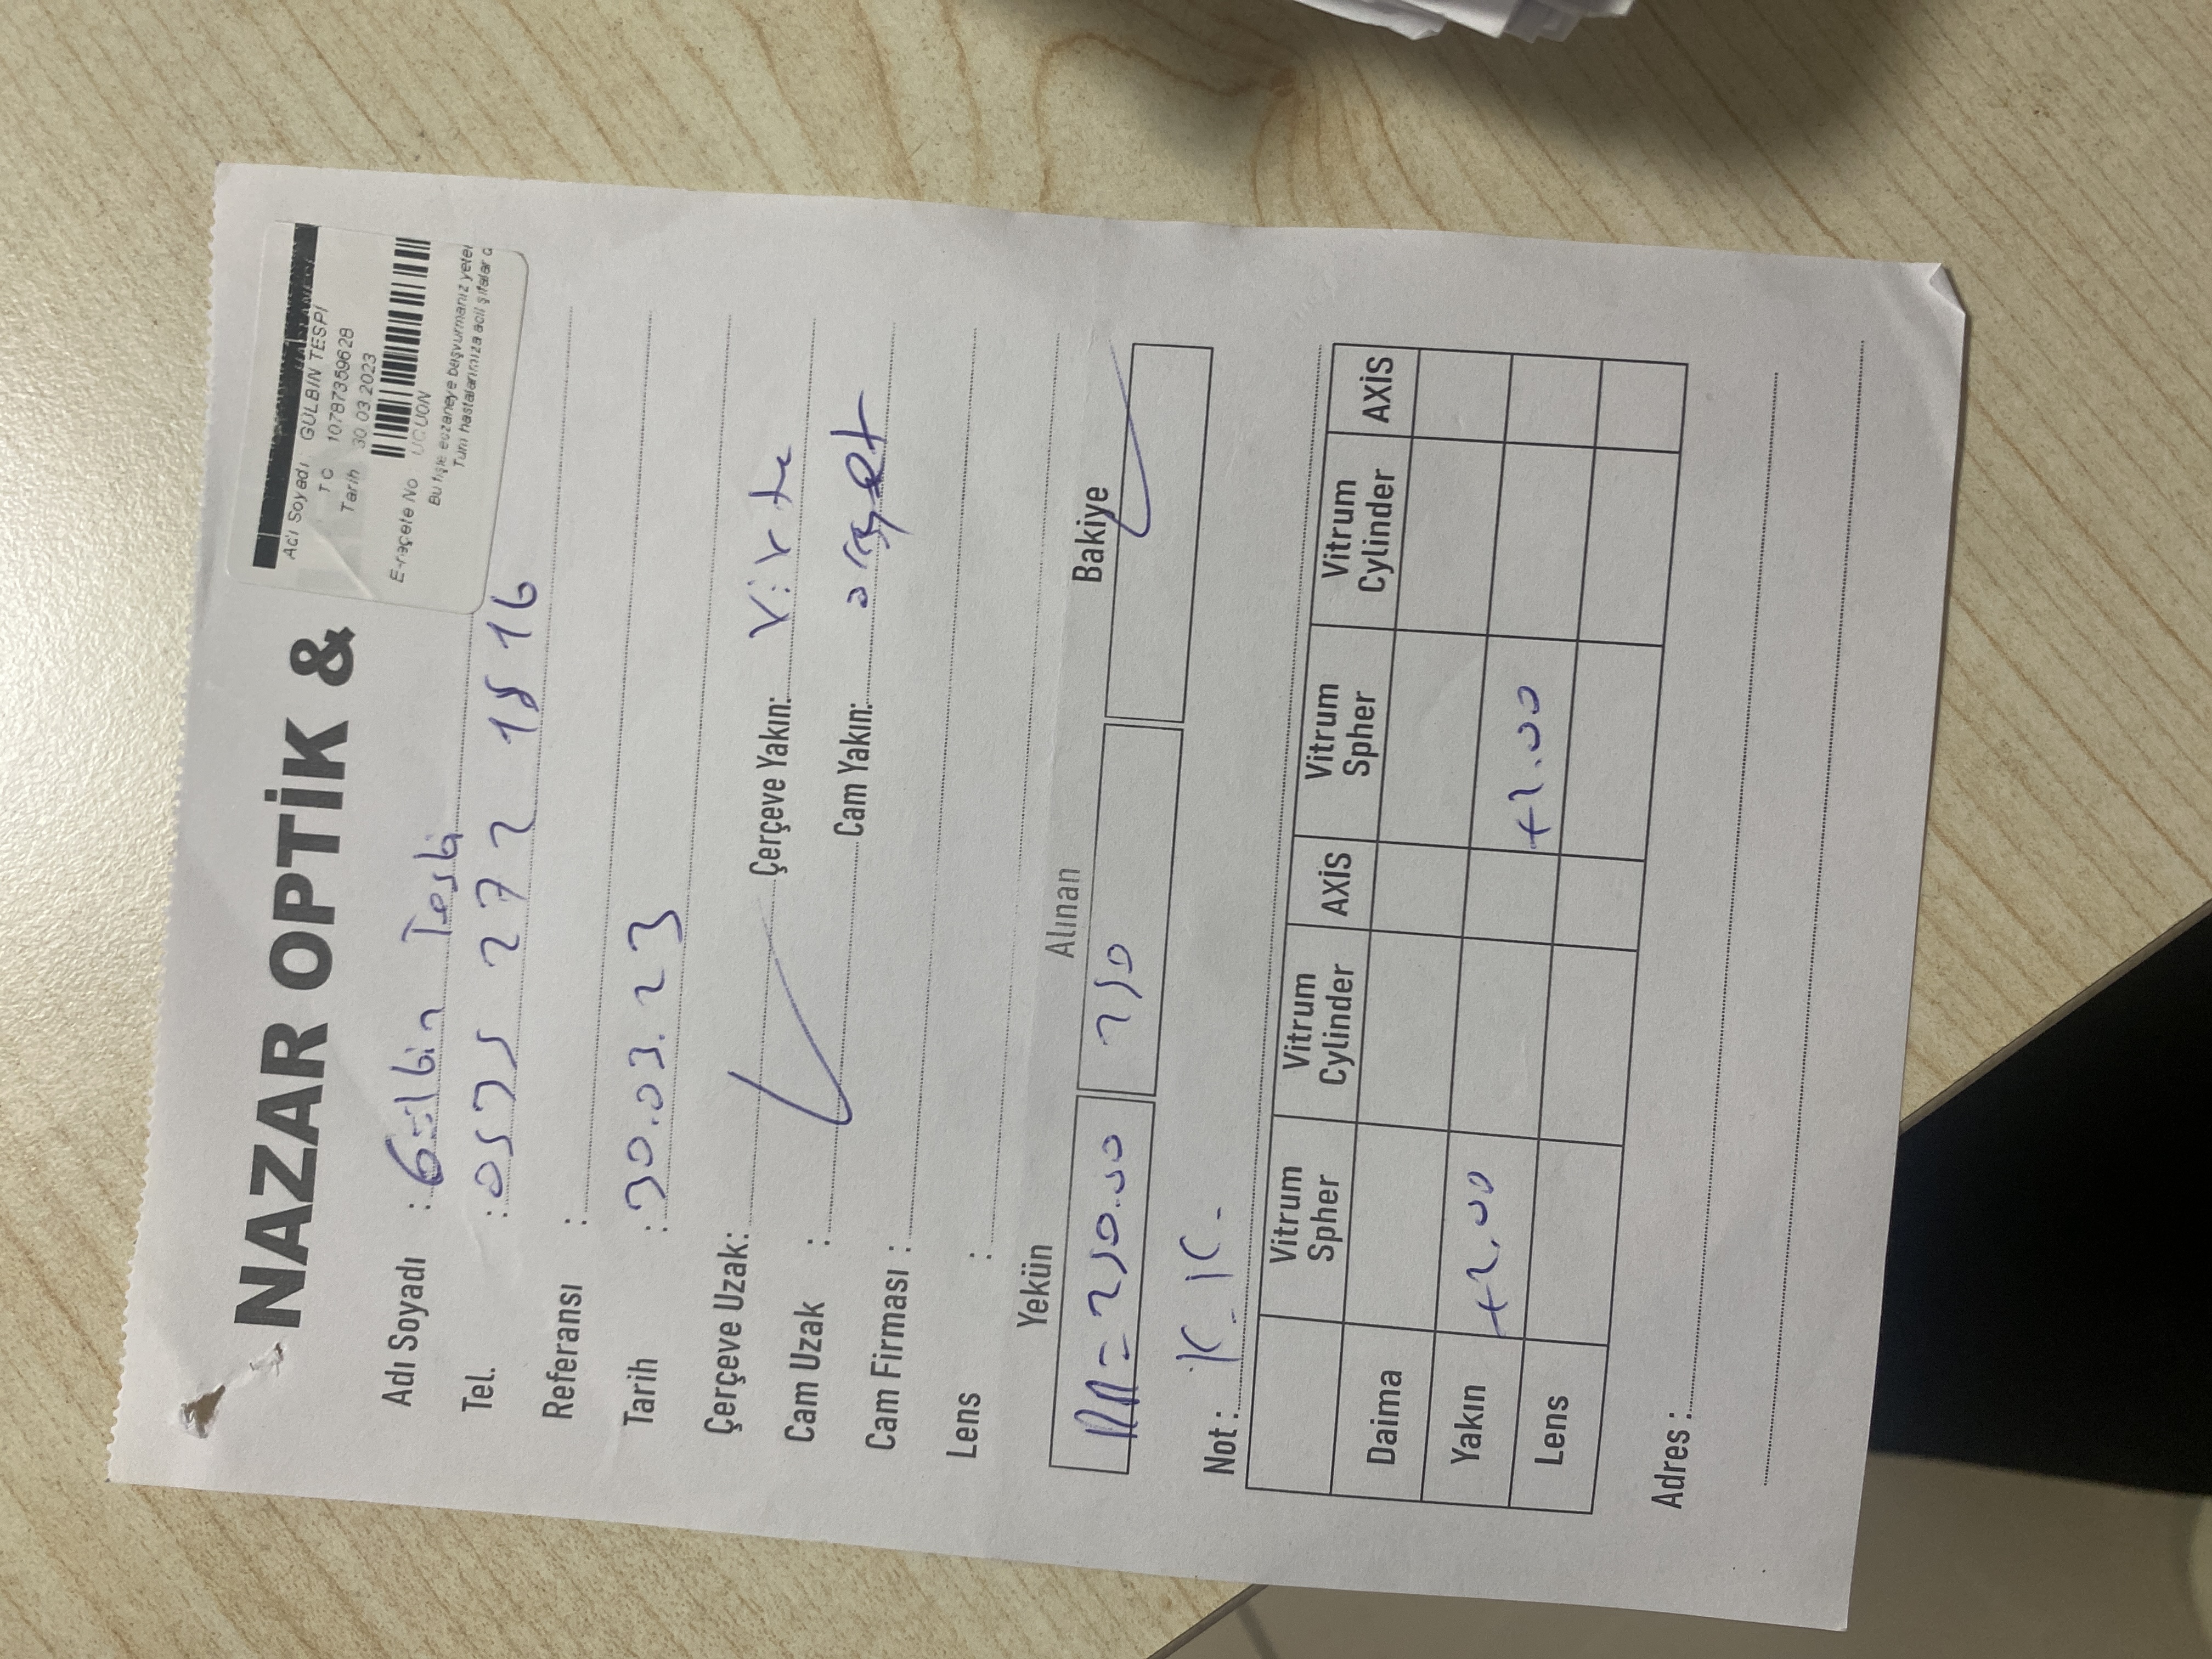 NAZAR OPTİK &
Adı Soyadı : GÜLBİN TESPİ
TC 10787359628
Tarih 30.03.2023
E-reçete No
Bu fişle eczaneye başvurmanız yeter
Tüm hastalarımıza acil şifalar d
Adı Soyadı : Gülbin Tesbi
Tel. : 0535 272 1816
Referansı :
Tarih : 30.03.23
Çerçeve Uzak: Çerçeve Yakın:
Cam Uzak : Cam Yakın:
Cam Firması :
Lens :
Yekün Alınan Bakiye
= 250.00 250
Not : K.K.
Vitrum Spher Vitrum Cylinder AXİS Vitrum Spher Vitrum Cylinder AXİS
Daima
Yakın +2.00 +2.00
Lens
Adres :